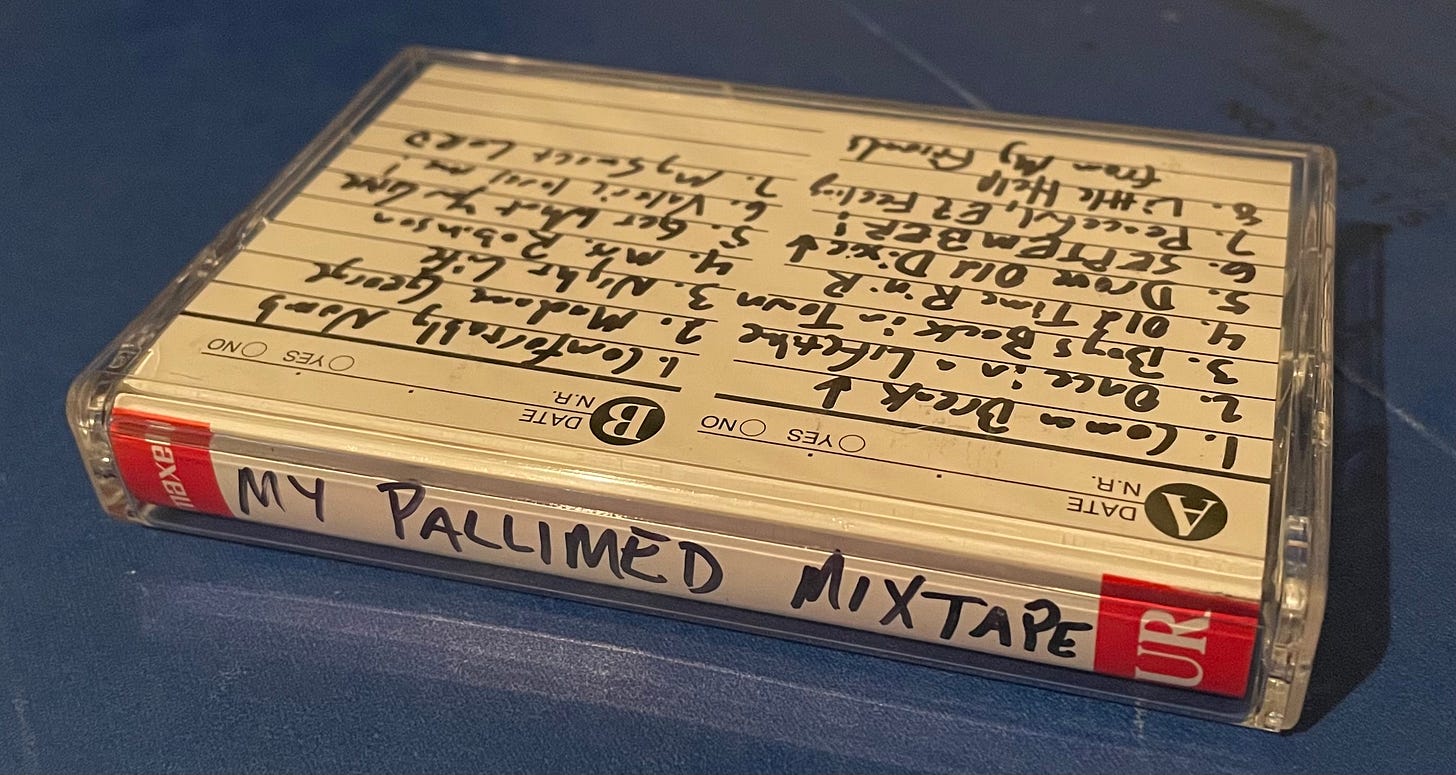 maxell
MY PALLIMED MIXTAPE
UR
A
DATE
N.R.
YES NO
1. Comon Break ↓
2. Once in a Lifetime
3. Boys Back in Town
4. Old Time R'n'R
5. Drove Old Dixie ↓
6. SEPTEMBER!
7. Peaceful, EZ Feeling
8. Little Help
from My Friends
B
DATE
N.R.
YES NO
1. Comfortably Numb
2. Madam George
3. Night Life
4. Mrs. Robinson
5. Get What You Give
6. Valerie loves me!
7. My Sweet LORD